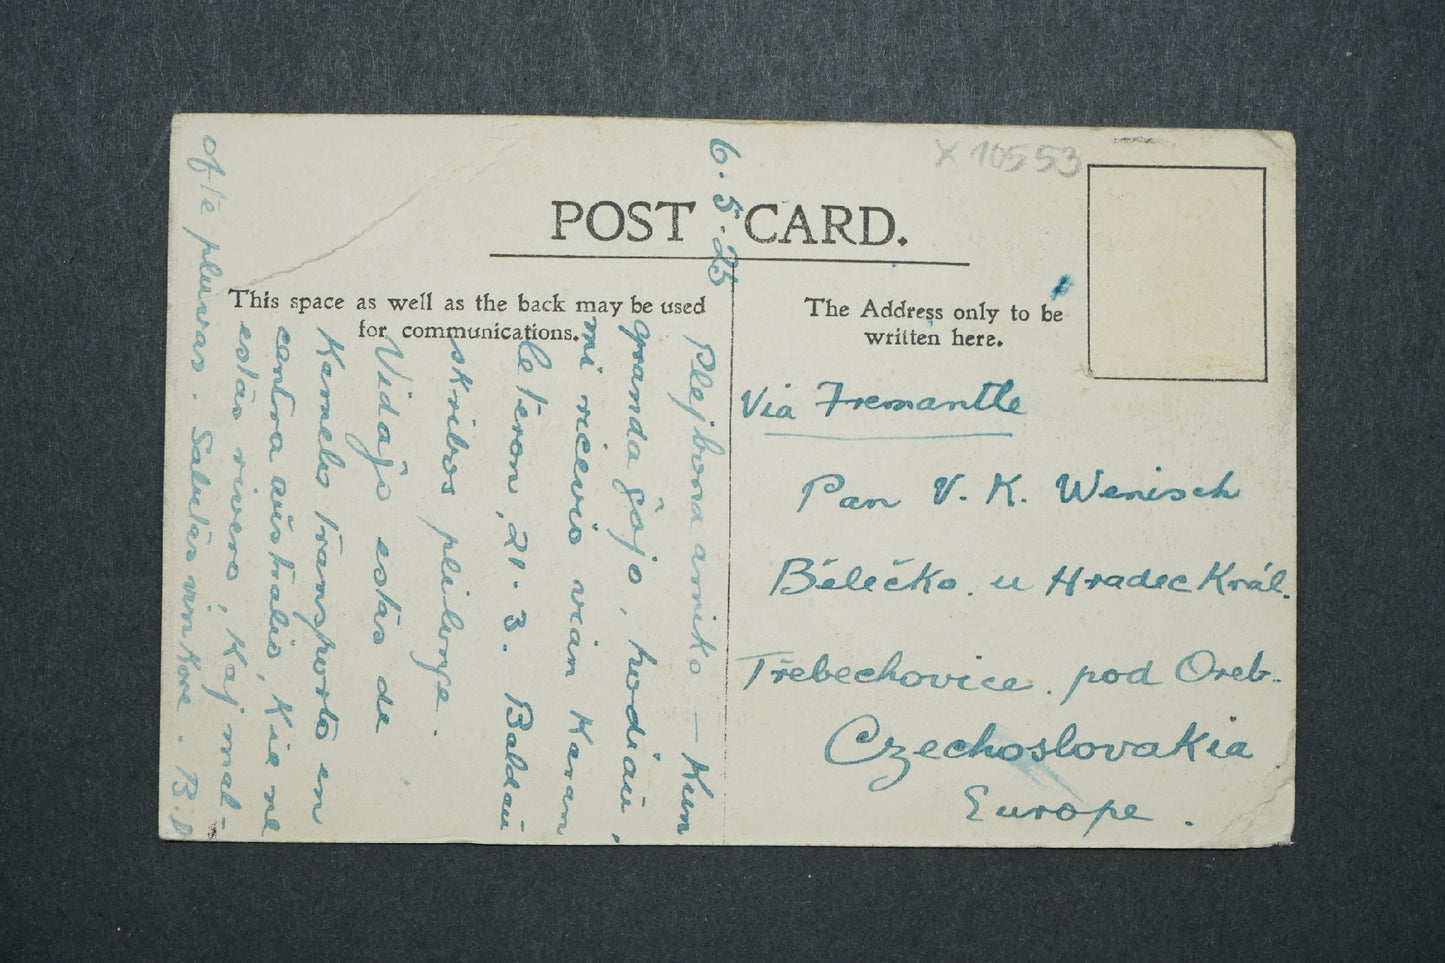 X 10553
POST CARD.
This space as well as the back may be used
for communications.
The Address only to be
written here.
6.5.25
Plejbona amiko — Kun
granda ĝojo, hodiaŭ,
mi ricevis vian karan
leteron, 21.3. Baldaŭ
skribos plilonge.
Vidaĵo estas de
Kamelo transporto en
centra aŭstralio, Kie ne
estas rivero, Kaj mal-
ofte pluvas. Salutas vin Kore. B.
Via Fremantle
Pan V. K. Wenisch
Bělečko. u Hradec Král.
Třebechovice. pod Oreb.
Czechoslovakia
Europe.